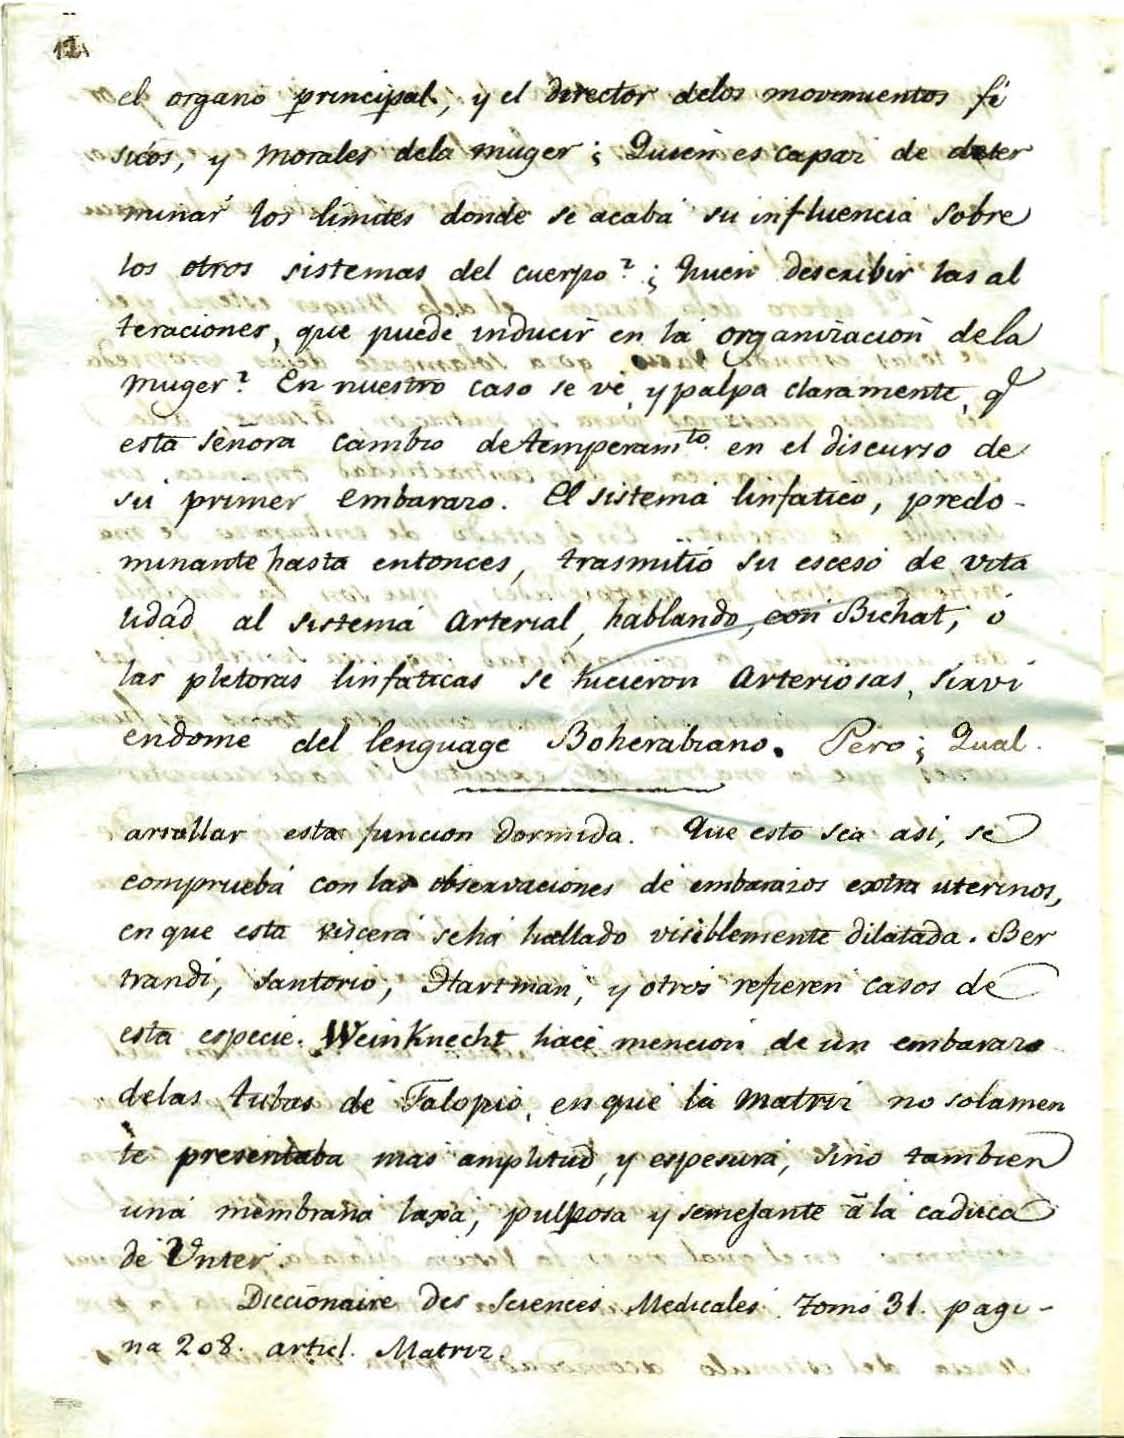 12.
el organo principal, y el director delos movimientos fi
sicos, y morales dela muger ¿ Quien es capaz de deter
minar los limites donde se acaba su influencia sobre
los otros sistemas del cuerpo? ¿ Quien describir las al
teraciones, que puede inducir en la organizacion dela
muger? En nuestro caso se vé, y palpa claramente, q.e
esta señora cambio de temperam.to en el discurso de
su primer embarazo. El sistema linfatico, predo-
minante hasta entonces, trasmitió su esceso de vita
lidad al sistema arterial, hablando, con Bichat, ó
las pletoras linfaticas se hicieron Arteriosas, sirvi
endome del lenguage Boherabiano. Pero ¿ Qual
arrollar esta funcion dormida. Que esto sea asi, se
comprueba con las observaciones de embarazos extra uterinos,
en que esta viscera seha hallado visiblemente dilatada. Ber
trandi, Santorio, Hartman, y otros refieren casos de
esta especie. WeinKnecht hace mencion de un embarazo
delas tubas de Falopio, en que la matriz no solamen
te presentaba mas amplitud, y espesura, sino tambien
una membrana laxa, pulposa y semejante á la caduca
de Unter.
Diccionaire des Sciences Medicales. Tomo 31. pagi-
na 208. articl. Matriz.